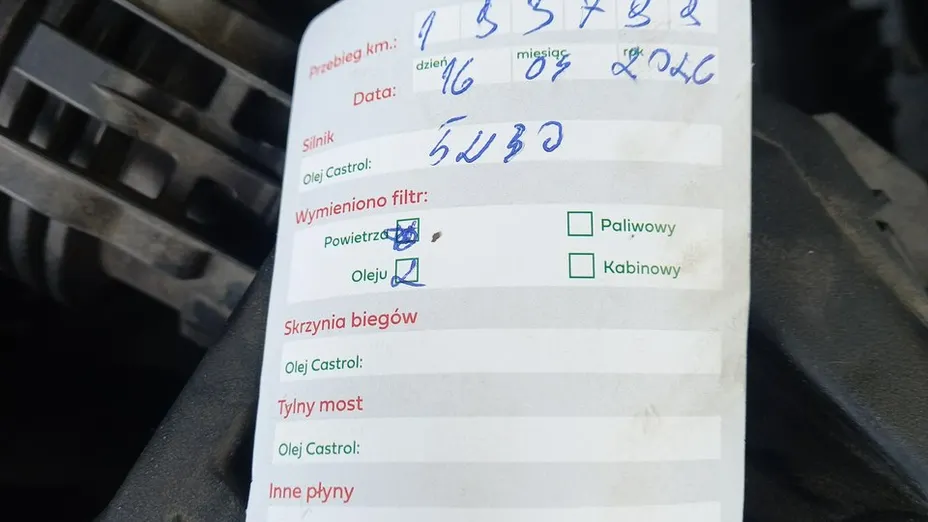 Przebieg km.: 1 3 3 7 3 3
dzień miesiąc rok
Data: 16 07 2026
Silnik
Olej Castrol: 5W30
Wymieniono filtr:
Powietrza Paliwowy
Oleju Kabinowy
Skrzynia biegów
Olej Castrol:
Tylny most
Olej Castrol:
Inne płyny